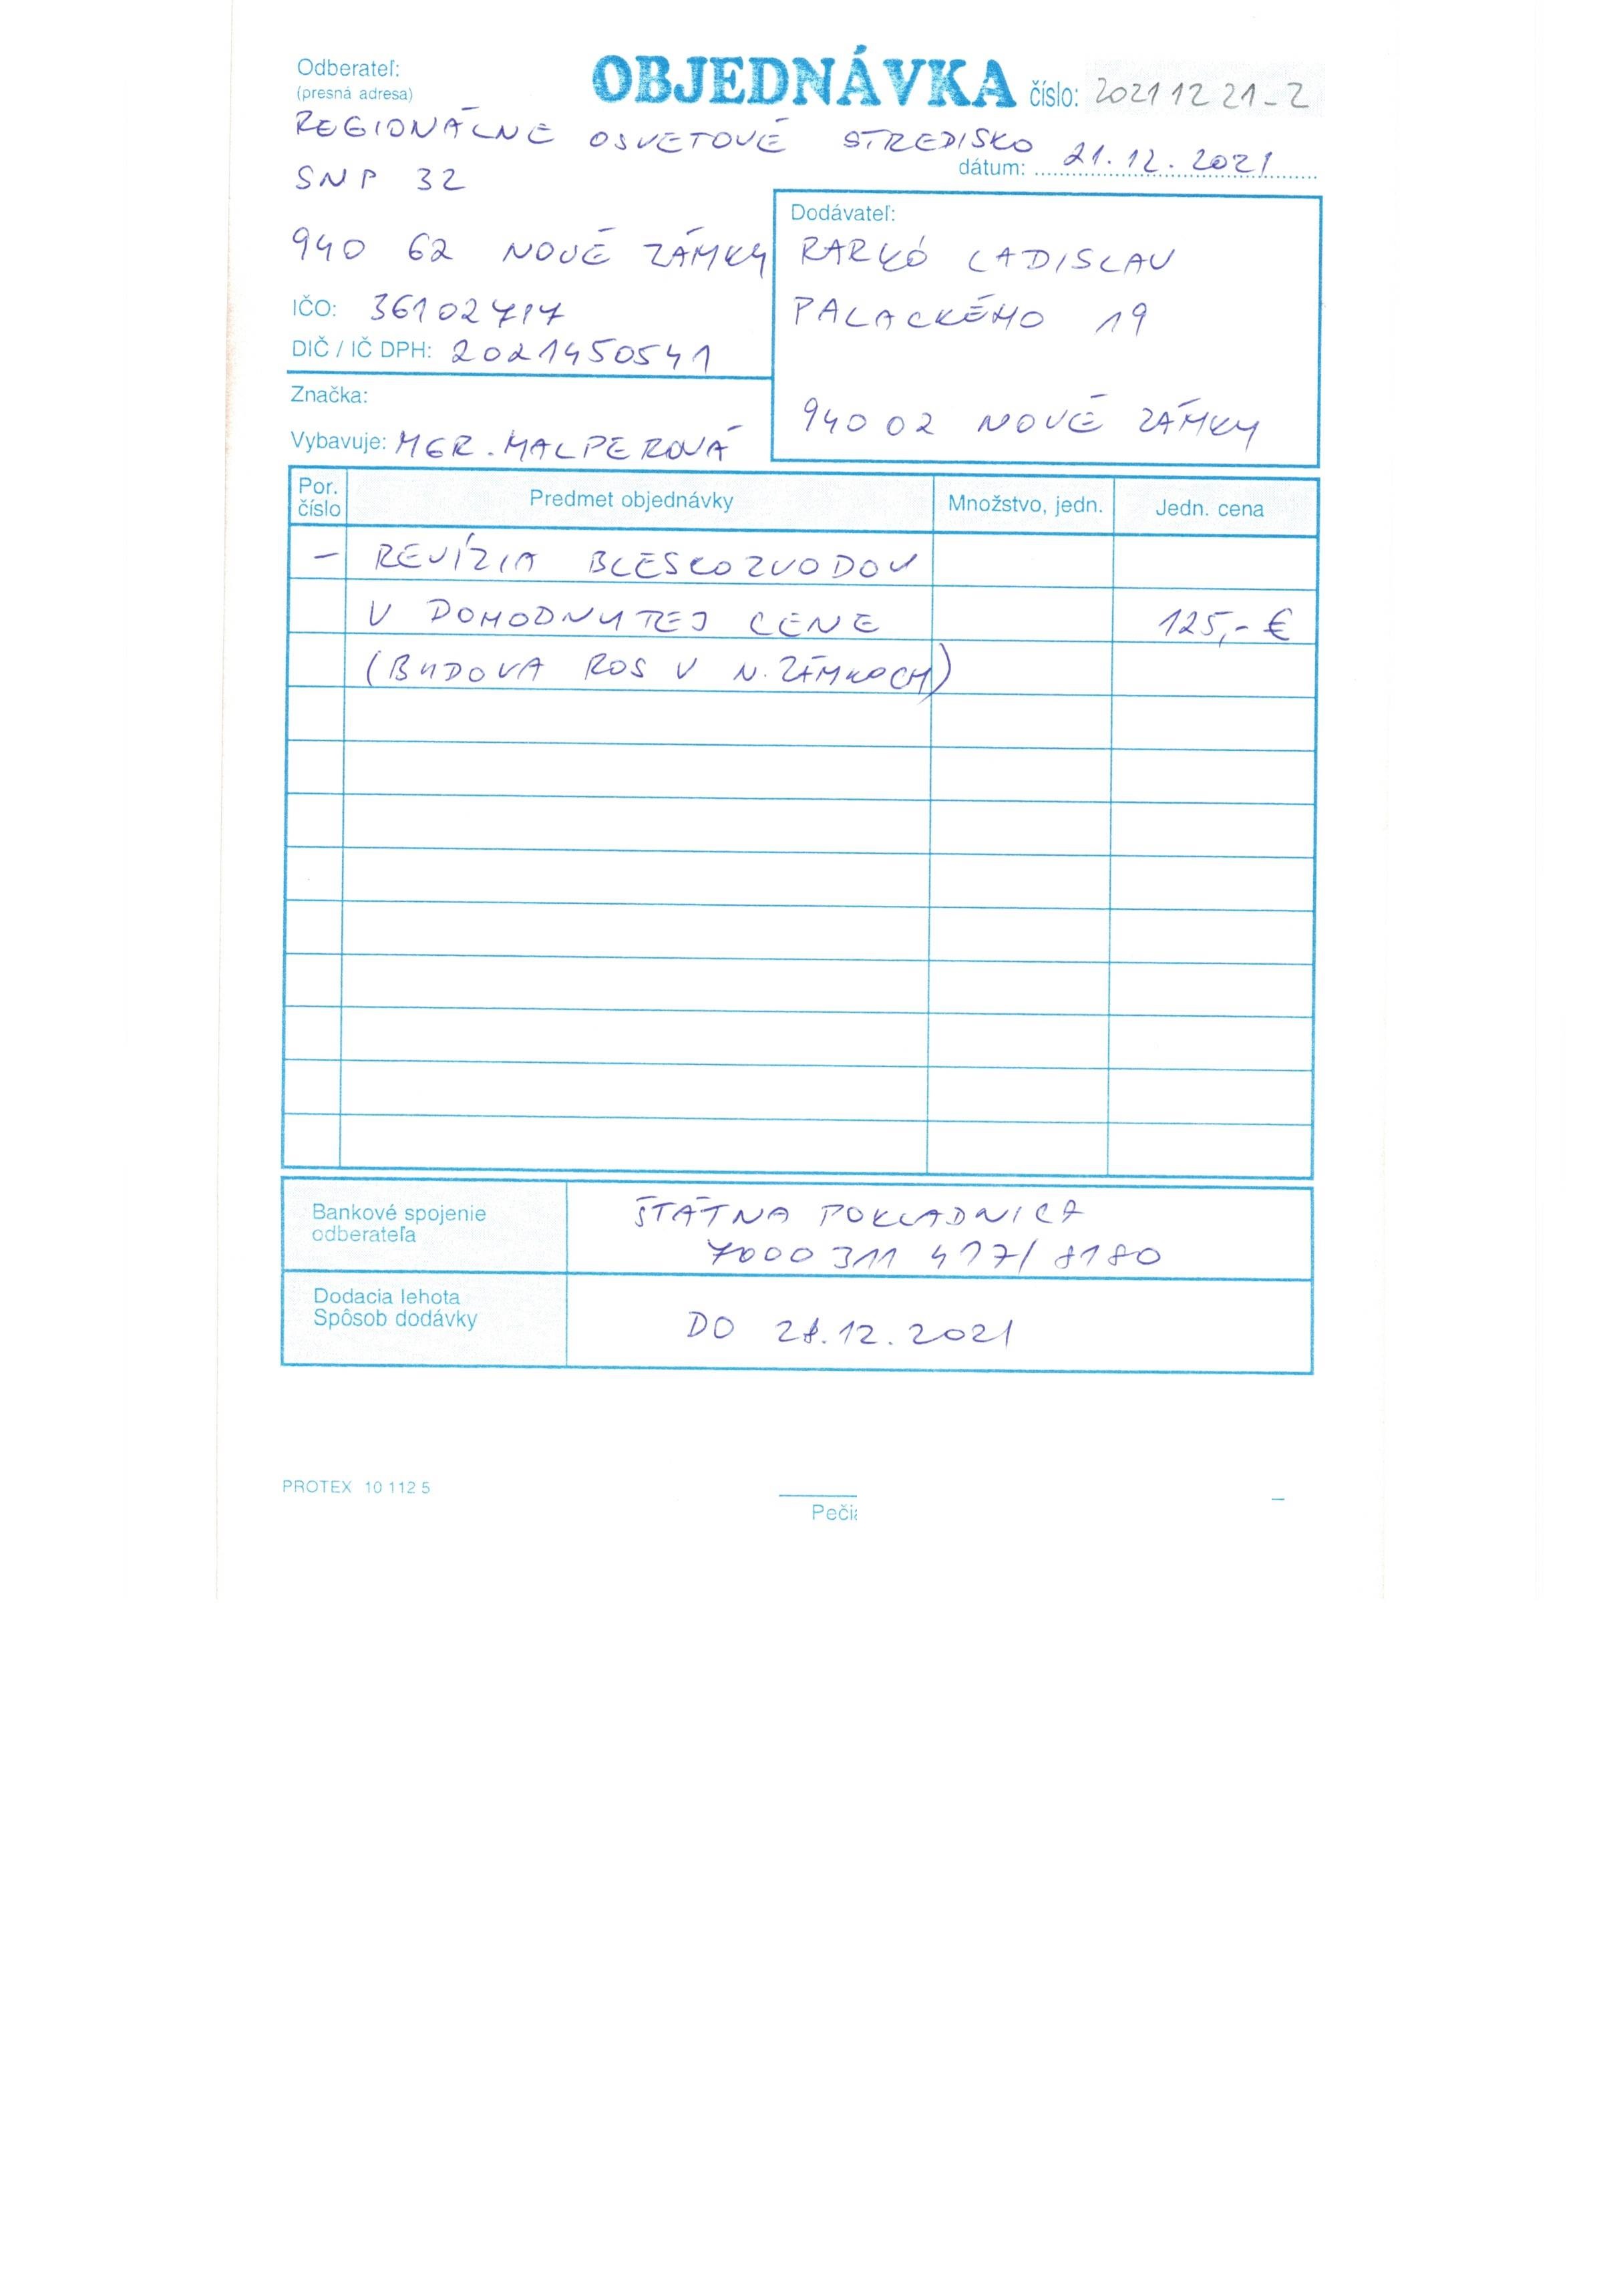 Odberateľ:
(presná adresa)
OBJEDNÁVKA číslo: 2021 12 21-2
REGIONÁLNE OSVETOVÉ STREDISKO
dátum: 21.12.2021
SNP 32
940 62 NOVÉ ZÁMKY
IČO: 36102717
DIČ / IČ DPH: 2021450541
Značka:
Vybavuje: MGR. MALPEROVÁ
Dodávateľ:
RARKÓ LADISLAV
PALACKÉHO 19
940 02 NOVÉ ZÁMKY
Por. číslo Predmet objednávky Množstvo, jedn. Jedn. cena
– REVÍZIA BLESKOZVODOV
V DOHODNUTEJ CENE 125,- €
(BUDOVA ROS V N. ZÁMKOCH)
Bankové spojenie
odberateľa
ŠTÁTNA POKLADNICA
7000 311 417/8180
Dodacia lehota
Spôsob dodávky
DO 28.12.2021
PROTEX 10 112 5